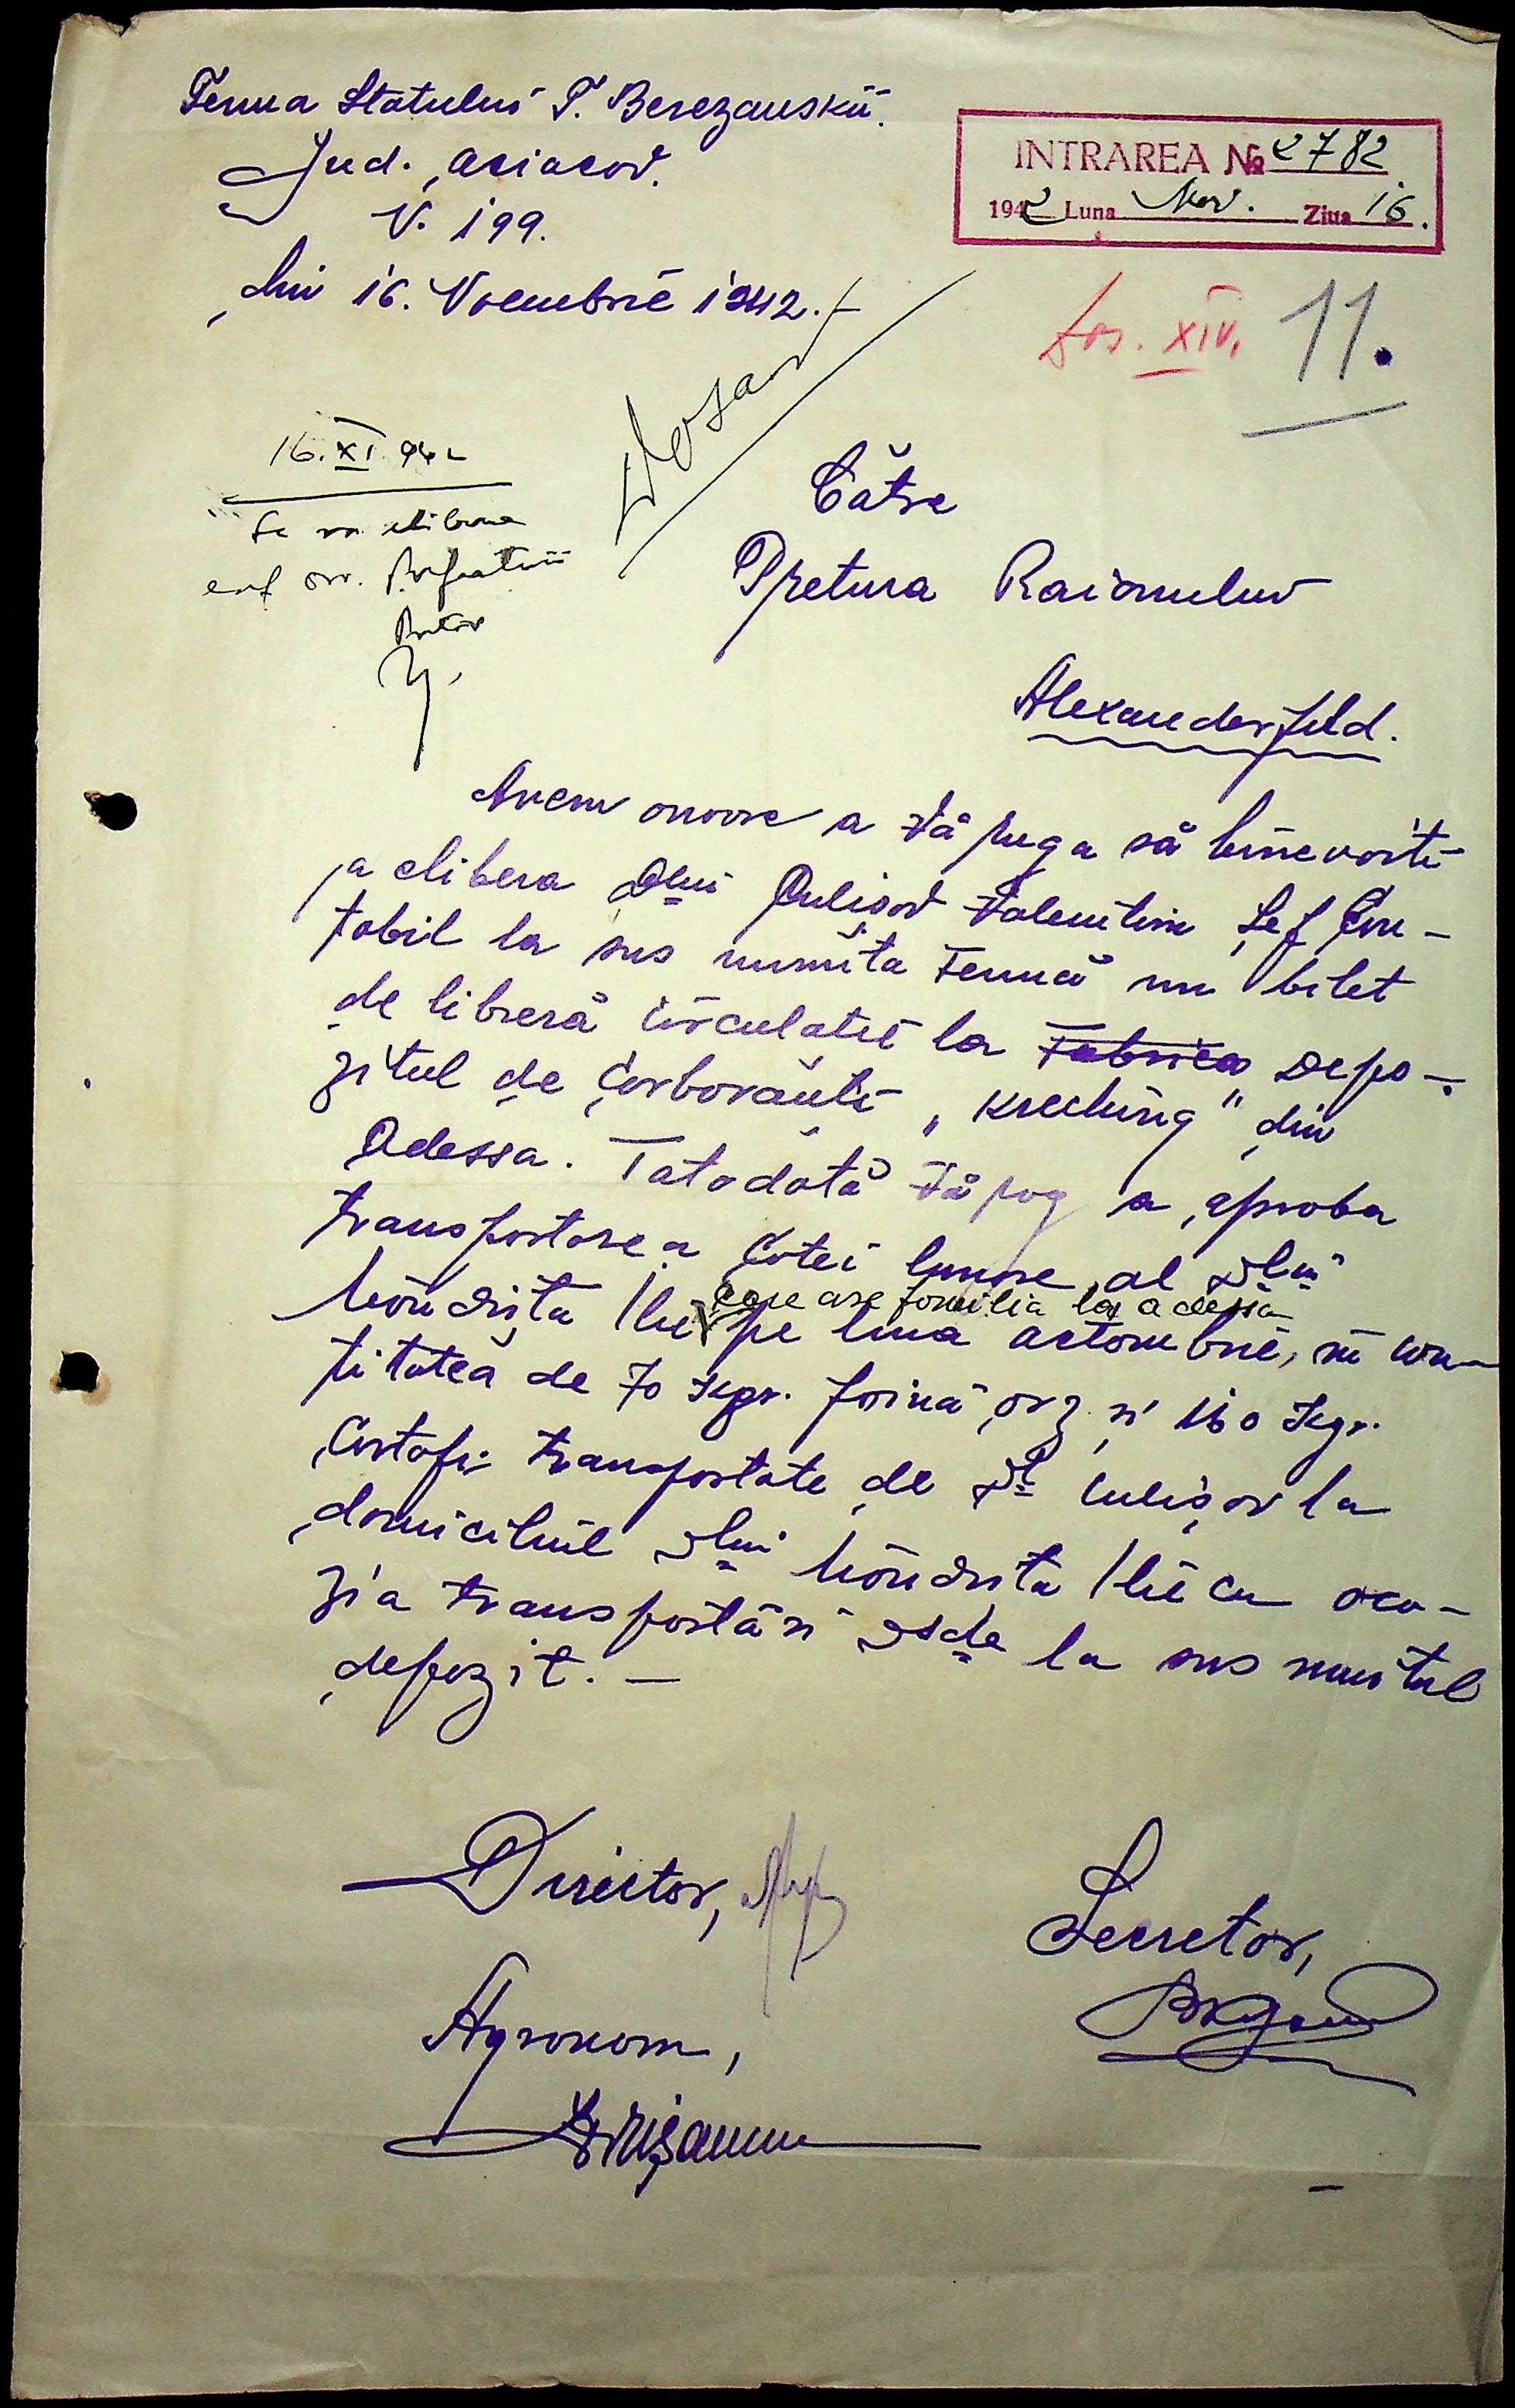 Ferma Statului T. Berezanskii.
Jud. Aciacov.
N. 199.
din 16. Noembrie 1942.-
INTRAREA № 2782
1942 Luna Nov. Ziua 16.
Dos. XIV. 11.
Dosar
16.XI.942
Se va elibera
conf ord. Prefecturii
Pretor
Către
Pretura Raionului
Alexanderfeld.
Avem onoare a Vă ruga să binevoiți
a elibera Dlui Culișov Valentin Șef Con-
tabil la sus numita Fermă un bilet
de liberă circulație la Fabrica Depo-
zitul de Carboranți „Kreching" din
Odessa. Totodată Vă rog a aproba
transportarea Cotei lunare al Dlui
care are familia la Odessa
Ilie pe luna Octombrie, în can-
titatea de 70 Kgr. făină orz și 160 Kgr.
Cartofi transportate de Dl Culișov la
domiciliul Dlui Ilie cu oca-
zia transportări de la sus numitul
depozit. -
Director,
Secretar,
Agronom,